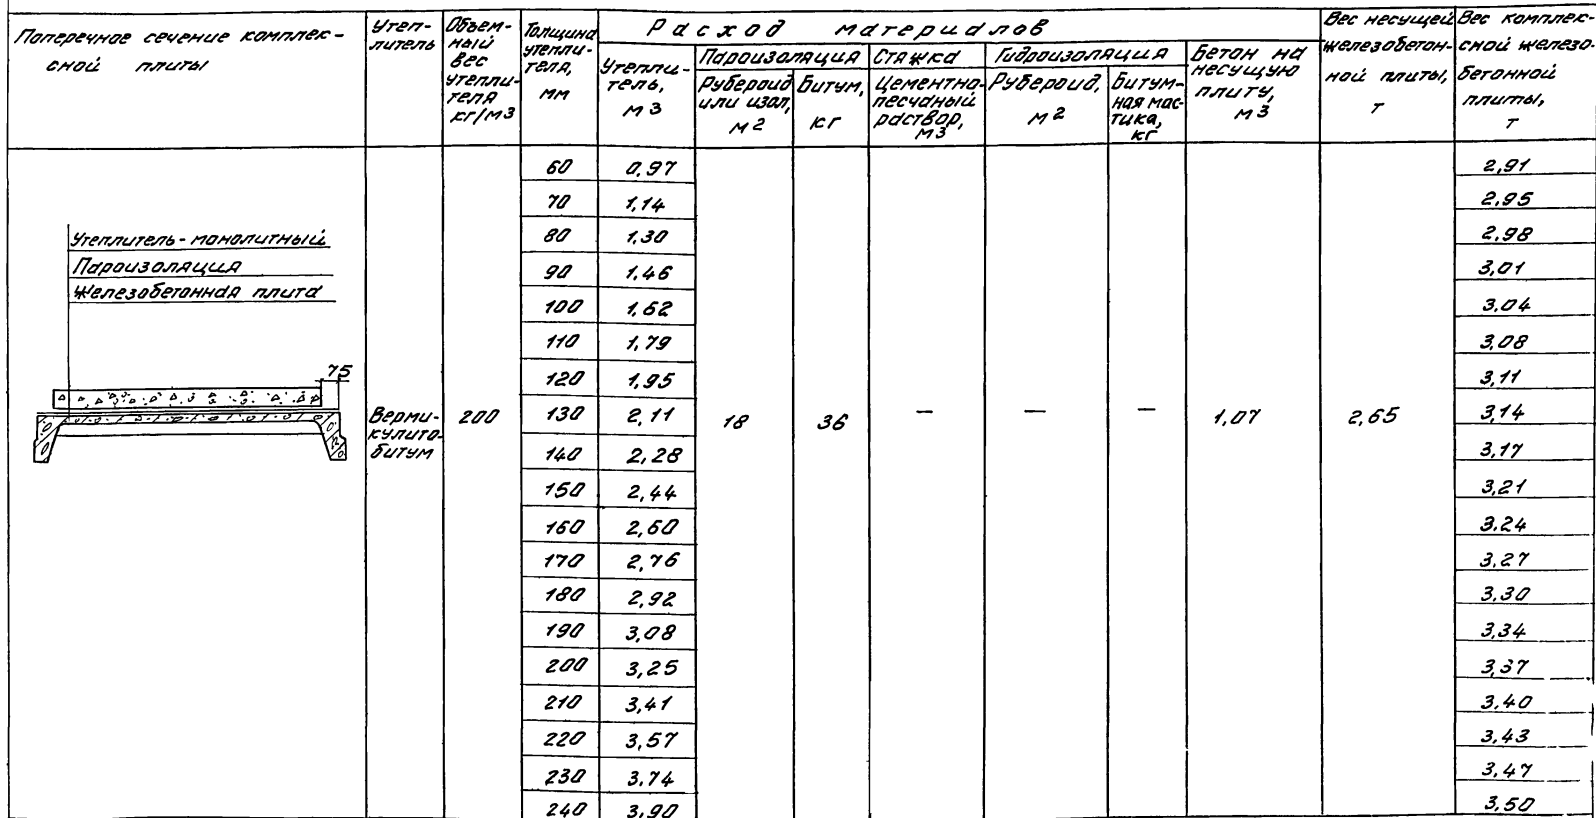 Поперечное сечение комплек-
сной плиты
Утеп-
литель
Объем-
ный
вес
утепли-
теля
кг/м3
Толщина
утепли-
теля,
мм
Расход материалов
Утепли-
тель,
м3
Пароизоляция
Рубероид
или изол,
м2
Битум,
кг
Стяжка
Цементно-
песчаный
раствор,
м3
Гидроизоляция
Рубероид,
м2
Битум-
ная мас-
тика,
кг
Бетон на
несущую
плиту,
м3
Вес несущей
железобетон-
ной плиты,
т
Вес комплек-
сной железо-
бетонной
плиты,
т
Утеплитель-монолитный
Пароизоляция
Железобетонная плита
75
Верми-
кулито-
битум
200
18
36
—
—
—
1,07
2,65
60 0,97 2,91
70 1,14 2,95
80 1,30 2,98
90 1,46 3,01
100 1,62 3,04
110 1,79 3,08
120 1,95 3,11
130 2,11 3,14
140 2,28 3,17
150 2,44 3,21
160 2,60 3,24
170 2,76 3,27
180 2,92 3,30
190 3,08 3,34
200 3,25 3,37
210 3,41 3,40
220 3,57 3,43
230 3,74 3,47
240 3,90 3,50